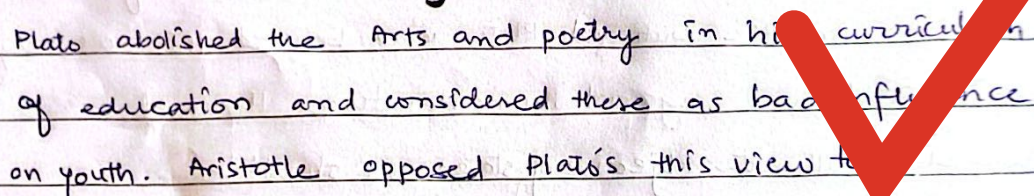 Plato abolished the Arts and poetry in his curriculum
of education and considered these as bad influence
on youth. Aristotle opposed Plato's this view